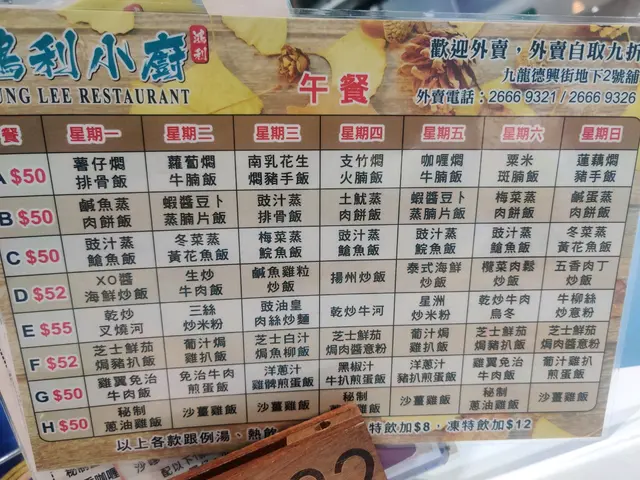 鴻利小廚 鴻利
UNG LEE RESTAURANT
午餐
歡迎外賣，外賣自取九折
九龍德興街地下2號舖
外賣電話：2666 9321 / 2666 9326
餐 星期一 星期二 星期三 星期四 星期五 星期六 星期日
A $50 薯仔燜排骨飯 蘿蔔燜牛腩飯 南乳花生燜豬手飯 支竹燜火腩飯 咖喱燜牛腩飯 粟米斑腩飯 蓮藕燜豬手飯
B $50 鹹魚蒸肉餅飯 蝦醬豆卜蒸腩片飯 豉汁蒸排骨飯 土魷蒸肉餅飯 蝦醬豆卜蒸腩片飯 梅菜蒸肉餅飯 鹹蛋蒸肉餅飯
C $50 豉汁蒸鯧魚飯 冬菜蒸黃花魚飯 梅菜蒸鯇魚飯 豉汁蒸鯧魚飯 豉汁蒸鯇魚飯 豉汁蒸鯧魚飯 冬菜蒸黃花魚飯
D $52 XO醬海鮮炒飯 生炒牛肉飯 鹹魚雞粒炒飯 揚州炒飯 泰式海鮮炒飯 欖菜肉鬆炒飯 五香肉丁炒飯
E $55 乾炒叉燒河 三絲炒米粉 豉油皇肉絲炒麵 乾炒牛河 星洲炒米粉 乾炒牛肉烏冬 牛柳絲炒意粉
F $52 芝士鮮茄焗豬扒飯 葡汁焗雞扒飯 芝士白汁焗魚柳飯 芝士鮮茄焗肉醬意粉 葡汁焗雞扒飯 芝士鮮茄焗豬扒飯 芝士鮮茄焗肉醬意粉
G $50 雞翼免治牛肉飯 免治牛肉煎蛋飯 洋蔥汁雞髀煎蛋飯 黑椒汁牛扒煎蛋飯 洋蔥汁豬扒煎蛋飯 雞翼免治牛肉飯 葡汁雞扒煎蛋飯
H $50 秘制蔥油雞飯 沙薑雞飯 沙薑雞飯 秘制 沙薑雞飯 秘制蔥油雞飯 沙薑雞飯
以上各款跟例湯，熱飲 特飲加$8，凍特飲加$12